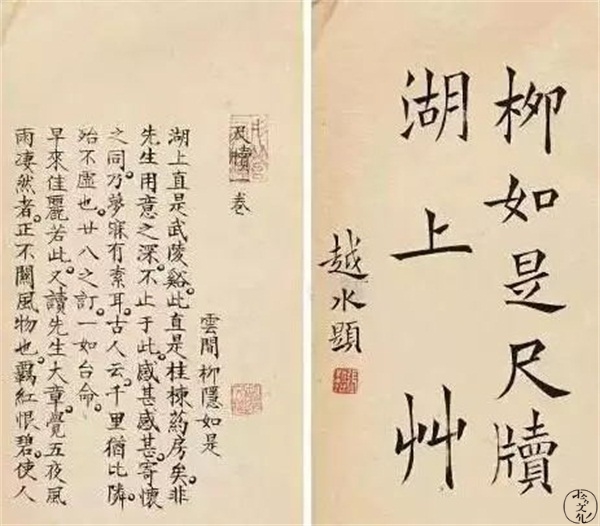 柳如是尺牘
湖上艸
越水題
尺牘一卷
雲間柳隱如是
湖上直是武陵谿。此直是桂棟药房矣。非
先生用意之深。不止于此。感甚感甚。寄懷
之同。乃夢寐有素耳。古人云。千里猶比隣。
殆不虛也。廿八之訂。一如台命。
早來佳麗若此。又讀先生大章。覺五夜風
雨淒然者。正不關風物也。羈紅恨碧。使人